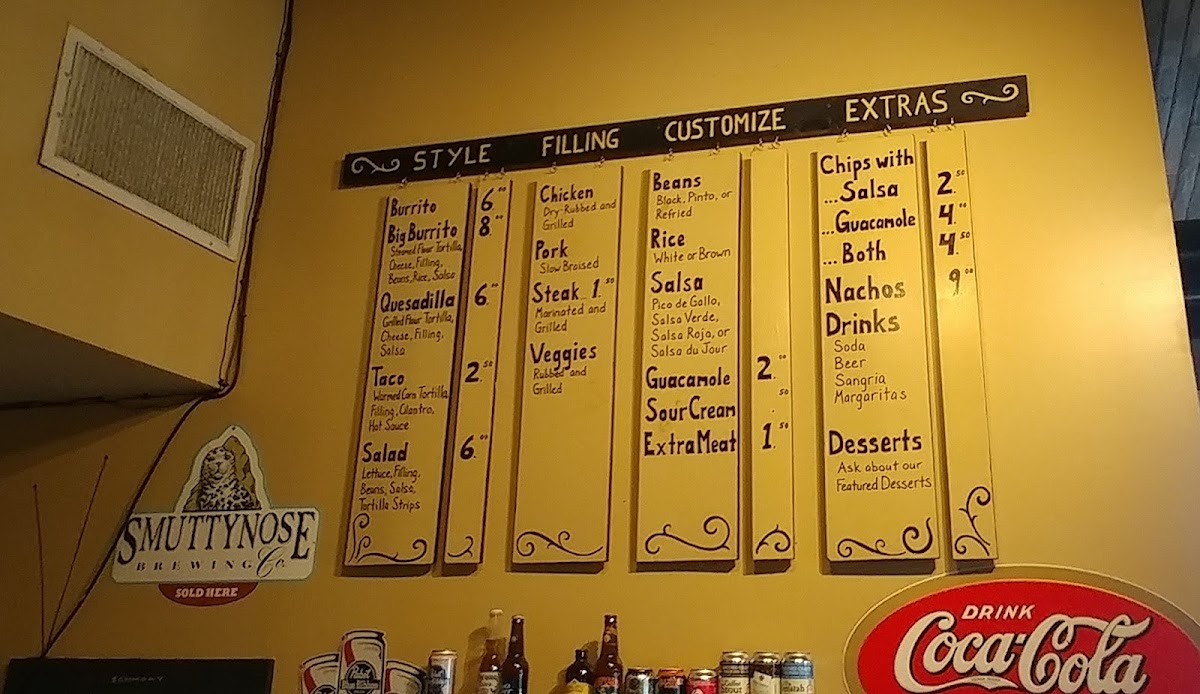 STYLE FILLING CUSTOMIZE EXTRAS
Burrito 6.00
Big Burrito 8.00
Steamed Flour Tortilla,
Cheese, Filling,
Beans, Rice, Salsa
Quesadilla 6.00
Grilled Flour Tortilla,
Cheese, Filling,
Salsa
Taco 2.50
Warmed Corn Tortilla
Filling, Cilantro,
Hot Sauce
Salad 6.00
Lettuce, Filling,
Beans, Salsa,
Tortilla Strips
Chicken
Dry-Rubbed and
Grilled
Pork
Slow Braised
Steak 1.50
Marinated and
Grilled
Veggies
Rubbed and
Grilled
Beans
Black, Pinto, or
Refried
Rice
White or Brown
Salsa
Pico de Gallo,
Salsa Verde,
Salsa Roja, or
Salsa du Jour
Guacamole 2.00
Sour Cream .50
Extra Meat 1.50
Chips with
...Salsa 2.50
...Guacamole 4.00
...Both 4.50
Nachos 9.00
Drinks
Soda
Beer
Sangria
Margaritas
Desserts
Ask about our
Featured Desserts
SMUTTYNOSE
BREWING Co.
SOLD HERE
DRINK
Coca-Cola
Pabst
Blue Ribbon
Stout